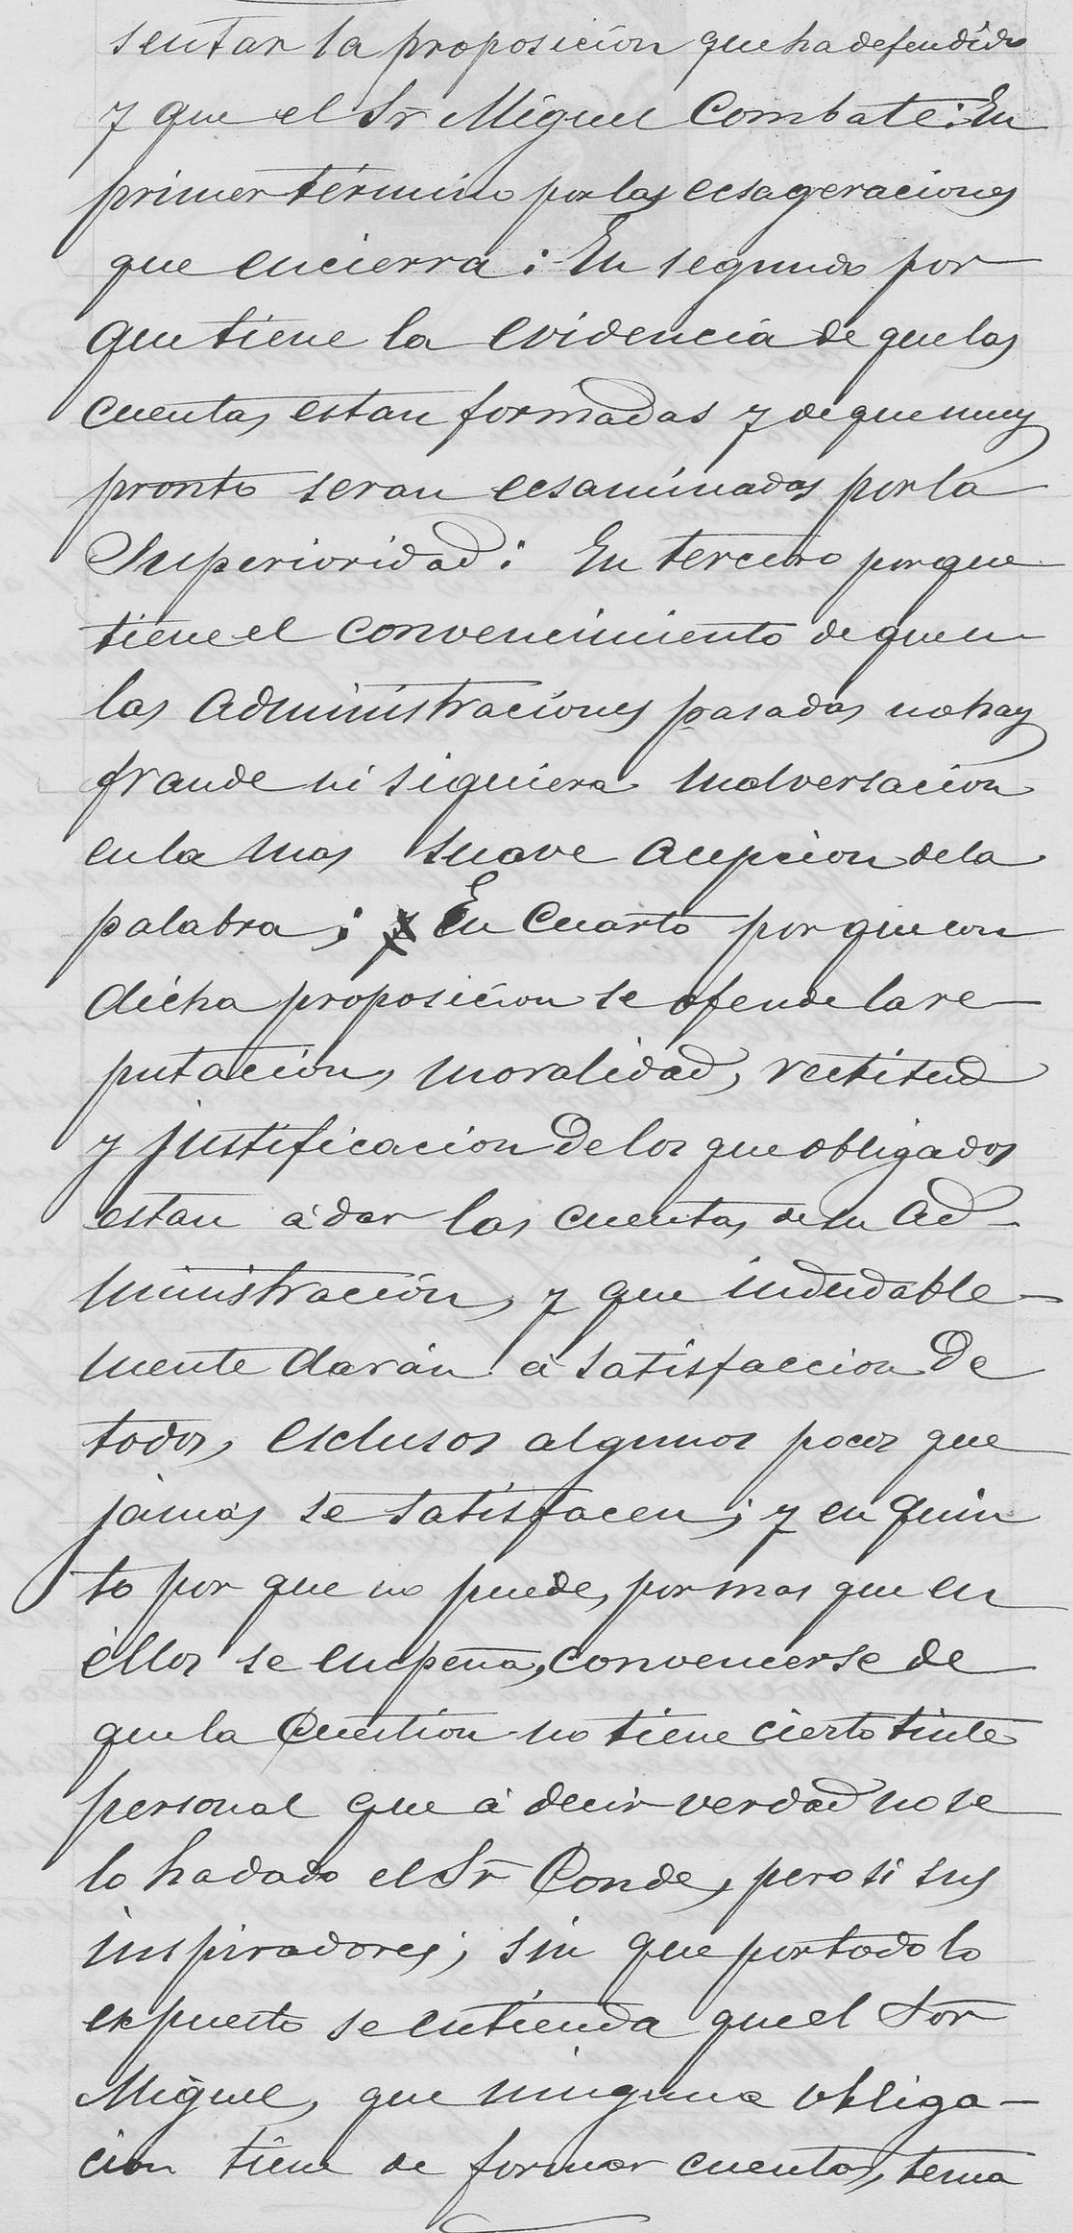 sentar la proposición que ha defendido
y que el Sr Miguel Combate: En
primer término por las ecsageraciones
que encierra: En segundo por
que tiene la evidencia de que las
cuentas estan formadas y de que muy
pronto seran ecsaminadas por la
Superioridad: En tercero porque
tiene el convencimiento de que en
las administraciones pasadas no hay
fraude ni siquiera malversacion
en la mas suave acepcion de la
palabra; En Cuarto por que con
dicha proposicion se ofende la re-
putacion, moralidad, rectitud
y justificacion de los que obligados
estan á dar las cuentas de su ad-
ministración, y que indudable-
mente darán á satisfaccion de
todos, esclusos algunos pocos que
jamás se satisfacen; y en quin
to por que no puede, por mas que en
éllos se empeña, convencerse de
que la Cuestion no tiene cierto tinte
personal que á decir verdad no se
lo ha dado el Sr Conde, pero si sus
inspiradores; sin que por todo lo
expuesto se entienda que el Sor
Miguel, que ninguna obliga-
cion tiene de formar cuentas, tema